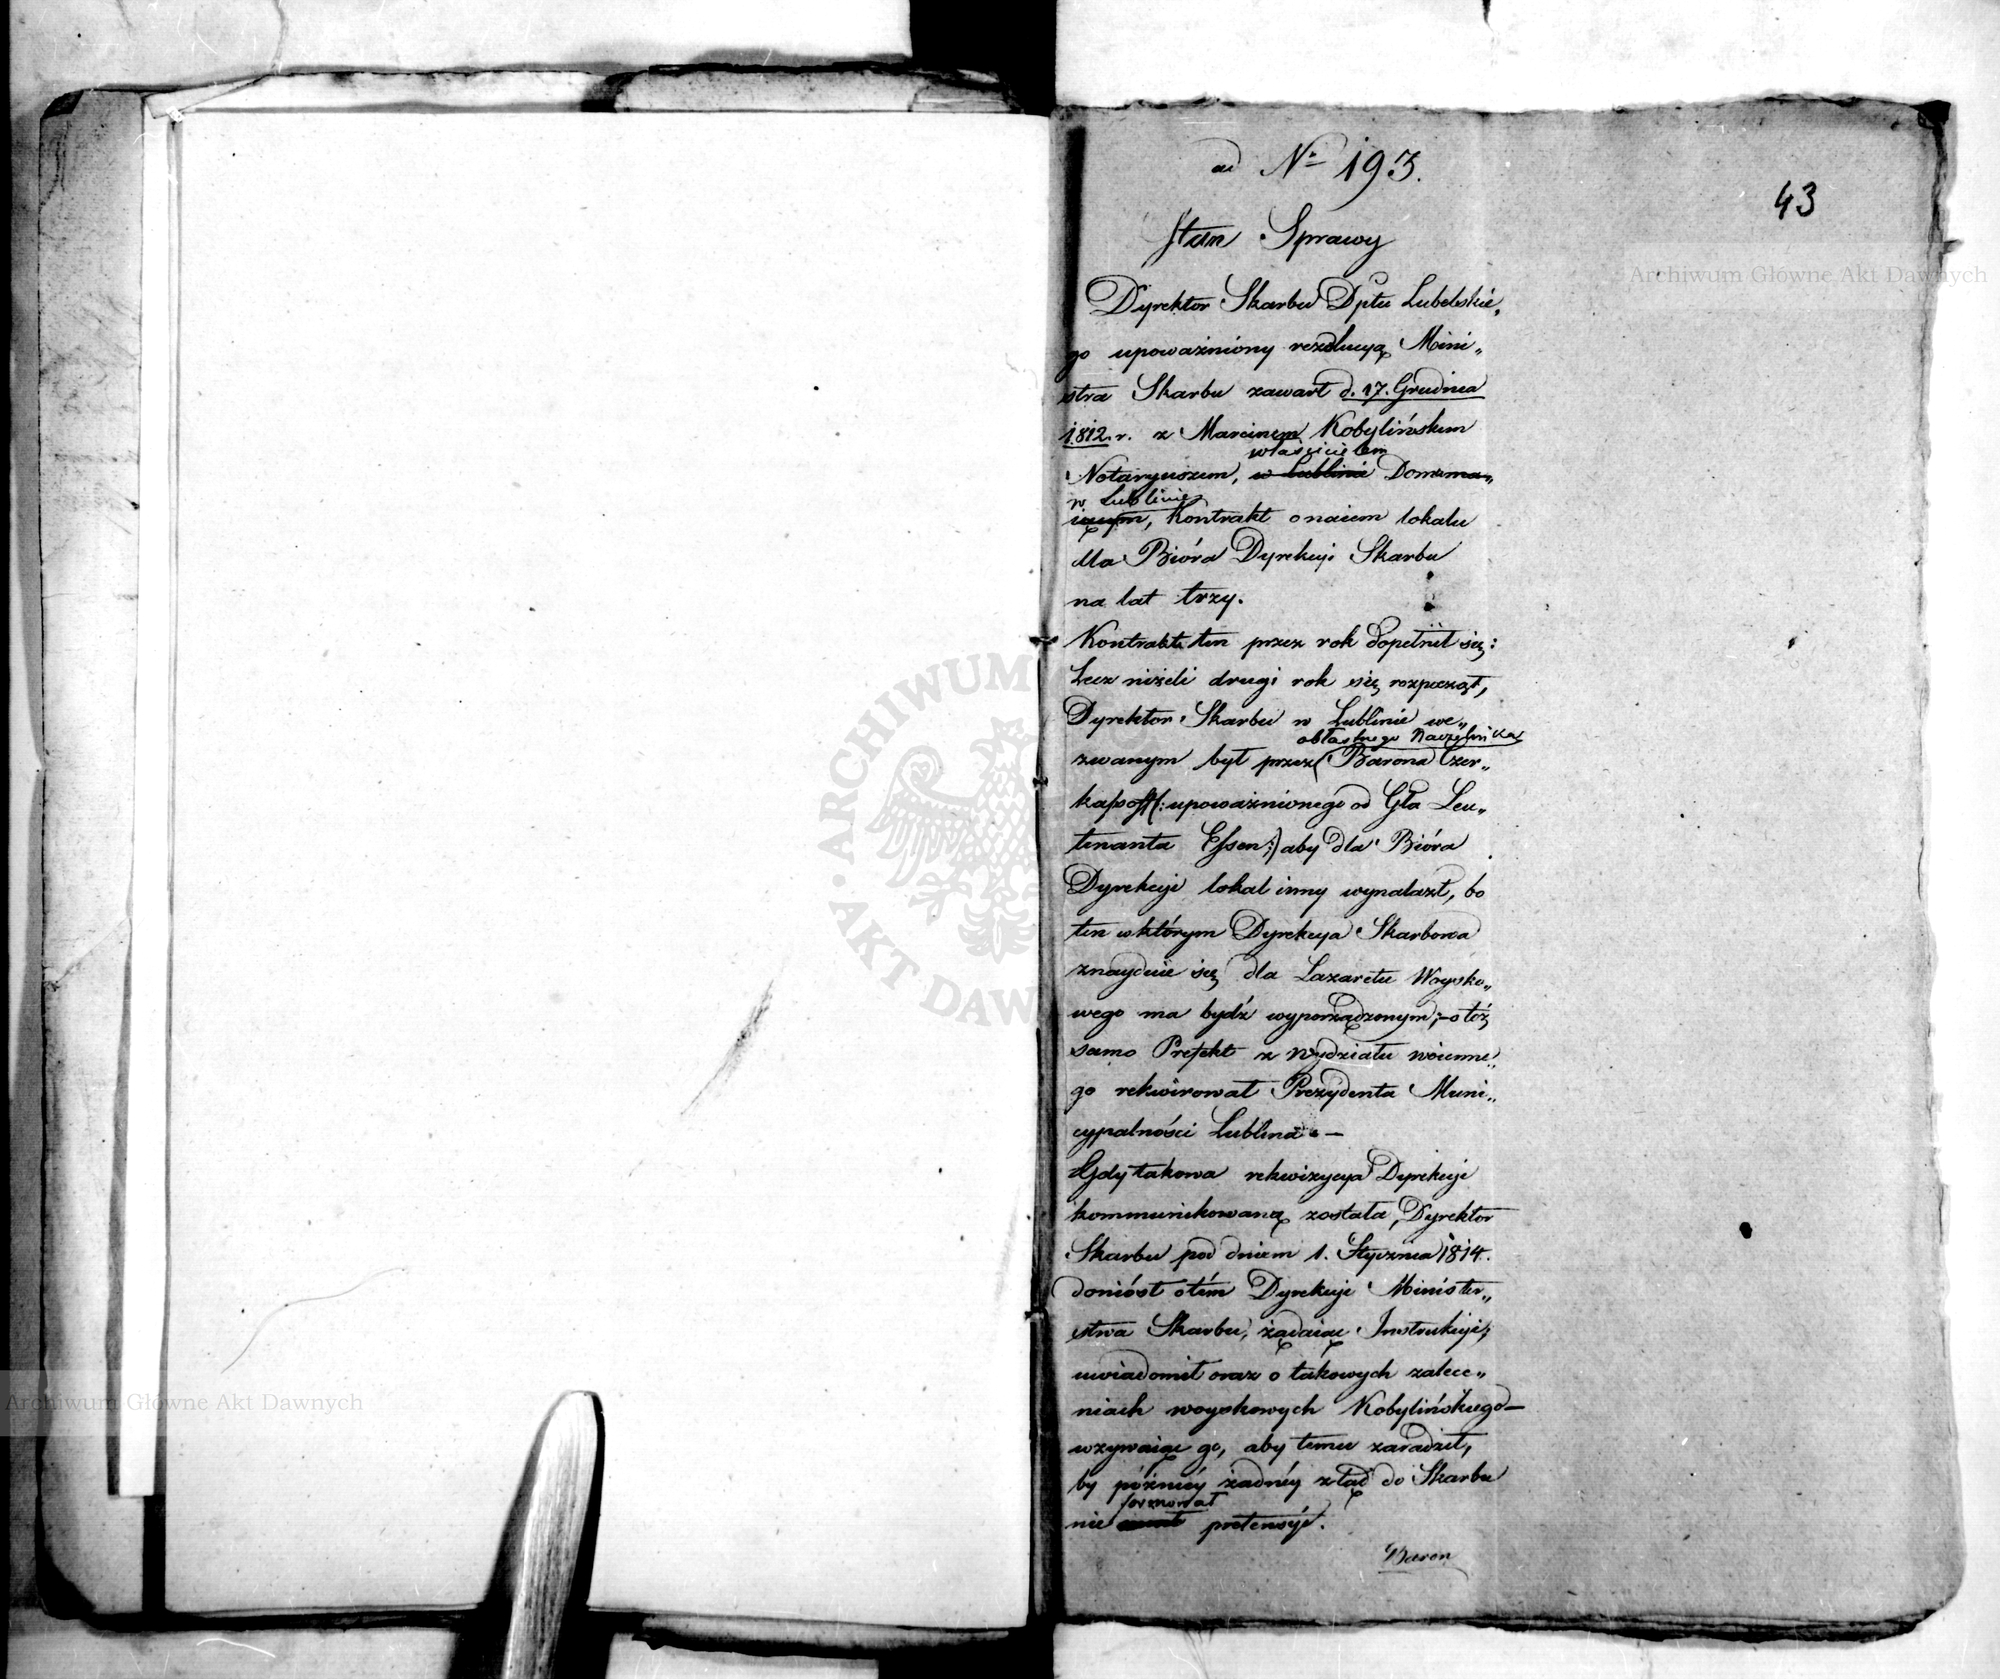 ad Nº 193.
43
Stan Sprawy
Dyrektor Skarbu Dptu Lubelskie„
go upoważniony rezolucyą Mini„
stra Skarbu zawarł d. 17. Grudnia
1812. r. z Marcinem Kobylińskim
właścicielem
Notaryuszem, w Lublinie Domu
w Lublinie
Kontrakt o naiem lokalu
dla Bióra Dyrekcyi Skarbu
na lat trzy.
Kontrakt ten przez rok dopełnił się:
Lecz niżeli drugi rok się rozpoczął,
Dyrektor Skarbu w Lublinie we„
obłastnego Naczelnika
zwanym był przez Barona Czer„
kaſsoff (: upoważnionego od Gła Leu„
tenanta Eſsen :) aby dla Bióra
Dyrekcyi lokal inny wynalazł, bo
ten w którym Dyrekcya Skarbowa
znayduie się dla Lazaretu Woysko„
wego ma bydź wyporządzonym; – o toż
samo Prefekt z Wydziału woienne„
go rekwirował Prezydenta Muni„
cypalności Lublina. –
Gdy takowa rekwizycya Dyrekcyi
kommunikowaną została, Dyrektor
Skarbu pod dniem 1. Stycznia 1814.
doniósł o tém Dyrekcyi Minister„
stwa Skarbu, żądaiąc Instrukcyi;
uwiadomił oraz o takowych zalece„
niach woyskowych Kobylińskiego –
wzywaiąc go, aby temu zaradził,
by późniéy żadnéy ztąd do Skarbu
formował
nie pretensyi.
Baron
Archiwum Główne Akt Dawnych
Archiwum Główne Akt Dawnych
ARCHIWUM
AKT DAW